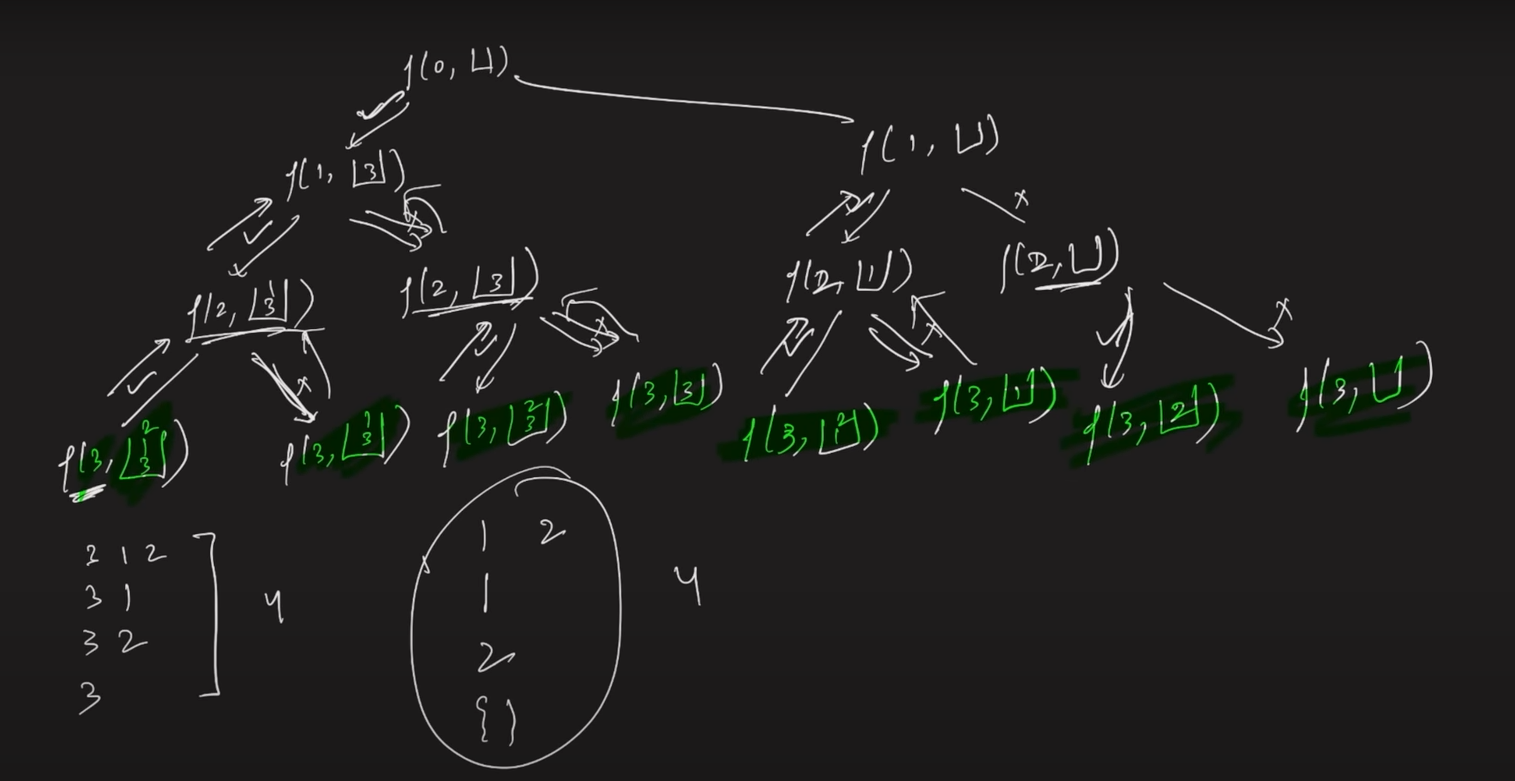 f(0, [])
f(1, [])
f(1, [3])
f(2, [1 3])
f(2, [3])
f(2, [1])
f(2, [])
f(3, [2 1 3])
f(3, [1 3])
f(3, [2 3])
f(3, [3])
f(3, [2 1])
f(3, [1])
f(3, [2])
f(3, [])
3 1 2
3 1
3 2
3
4
1 2
1
2
{}
4